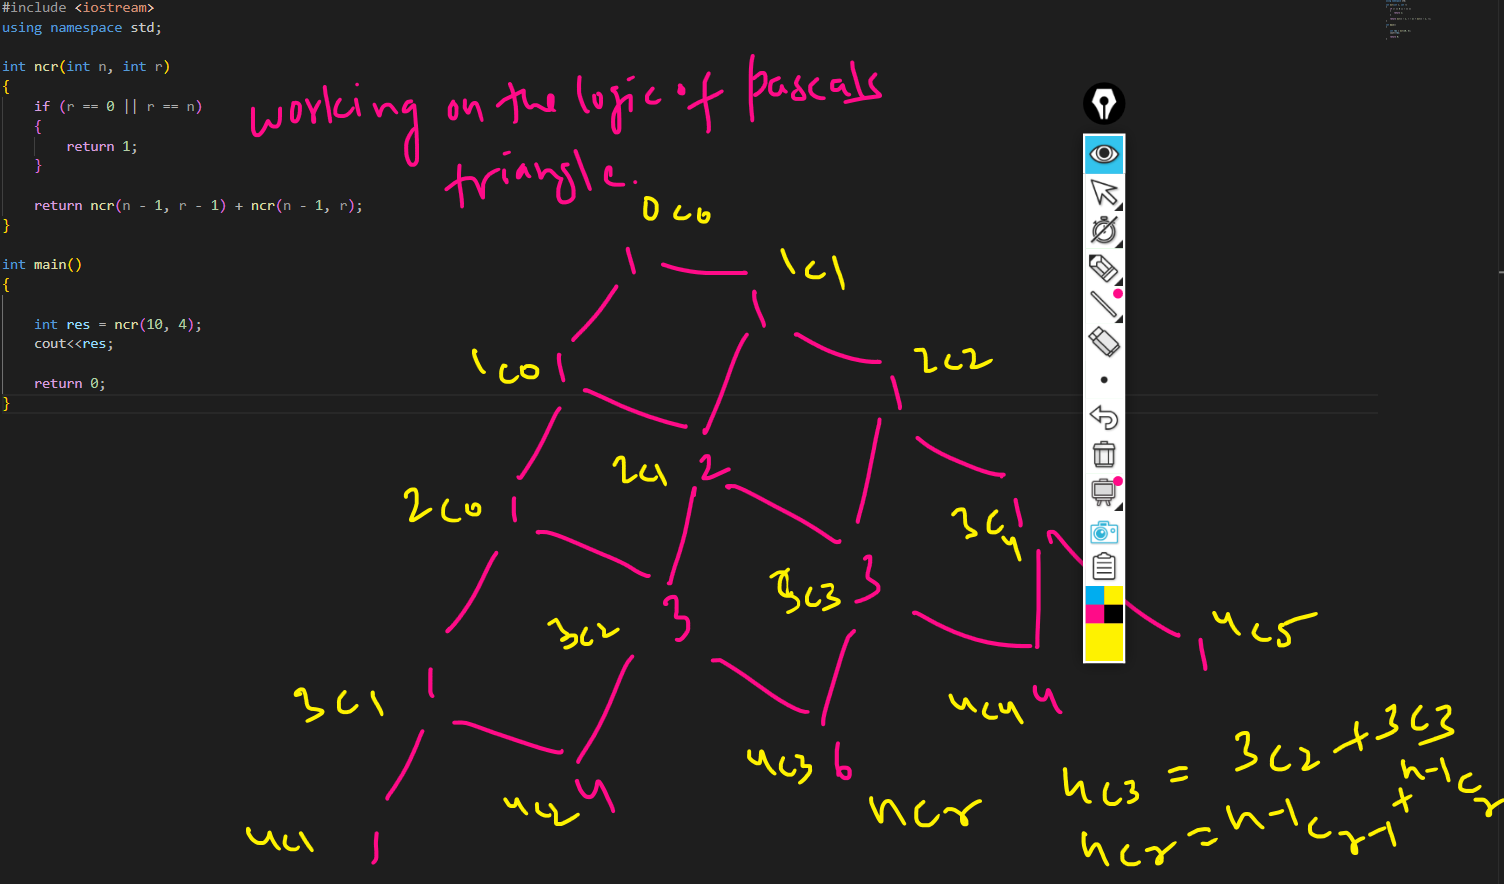 #include <iostream>
using namespace std;
int ncr(int n, int r)
{
if (r == 0 || r == n)
{
return 1;
}
return ncr(n - 1, r - 1) + ncr(n - 1, r);
}
int main()
{
int res = ncr(10, 4);
cout<<res;
return 0;
}
working on the logic of pascals
triangle.
0c0
1
1c1
1
1c0
1
2c2
1
2c1
2
2c0
1
3c4
1
3c3
3
3c2
3
4c5
1
3c1
1
4c4
4
4c3
6
4c2
4
4c1
1
ncr
4c3 = 3c2 + 3c3
ncr = n-1cr-1 + n-1cr